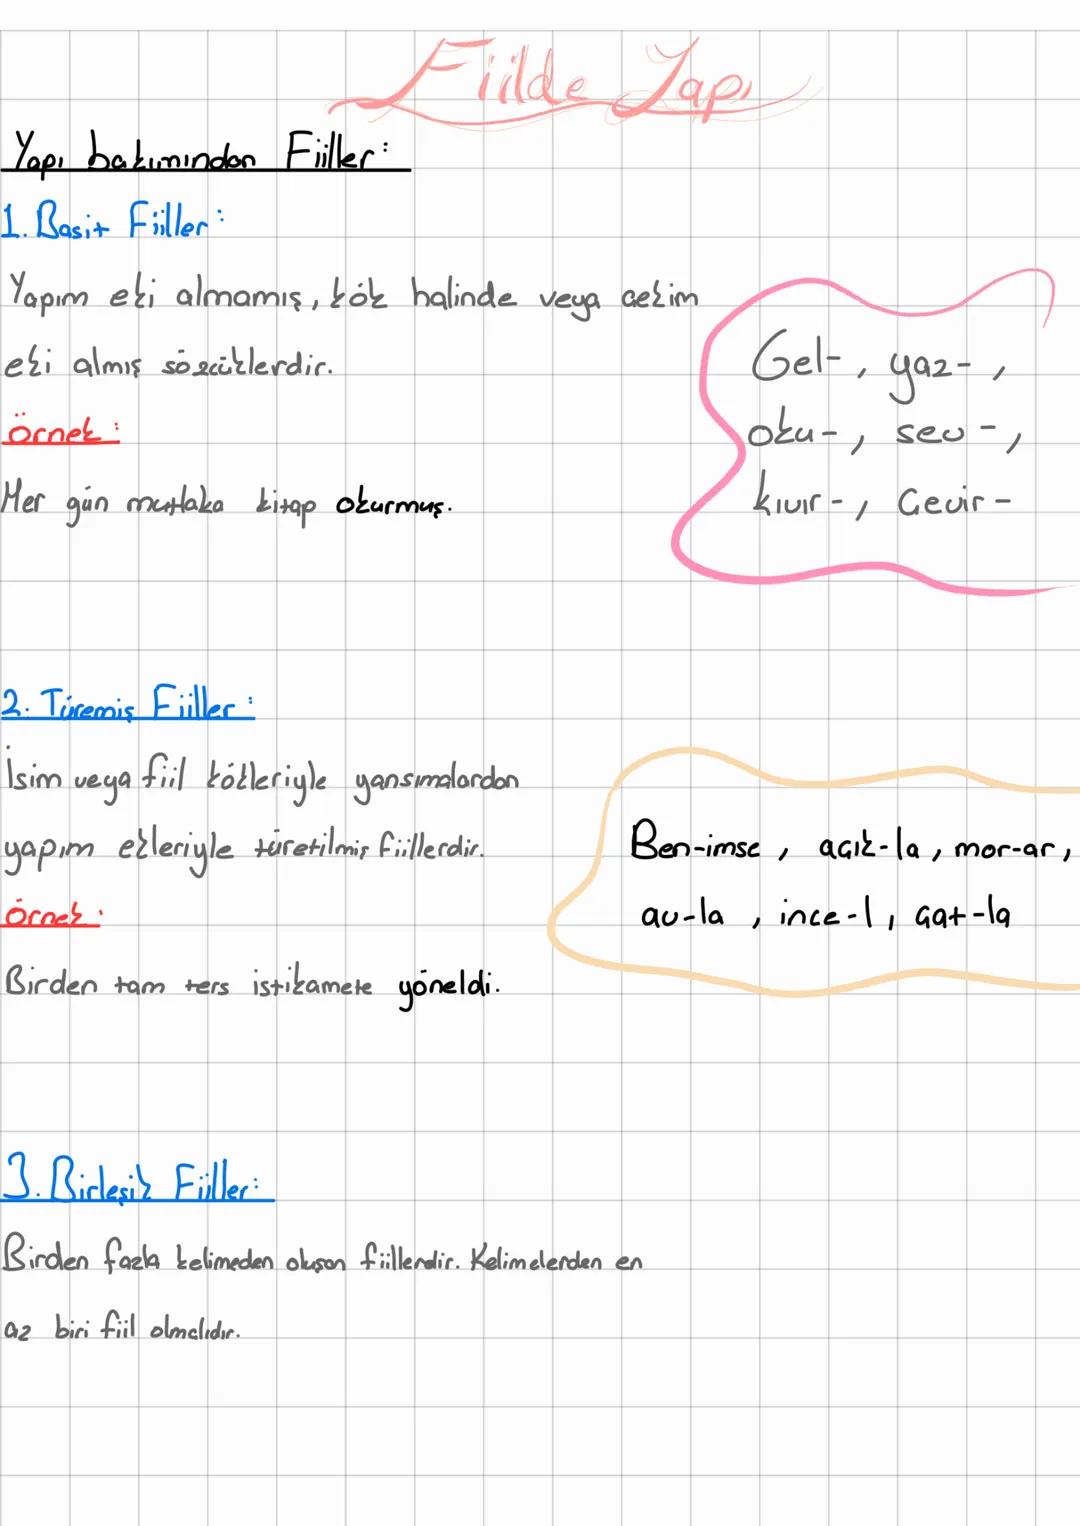 Fiilde Yapı
Yapı bakımından Fiiller:
1. Basit Fiiller:
Yapım eki almamış, kök halinde veya çekim
eki almış sözcüklerdir.
Gel-, yaz-,
oku-, sev-,
kıvır-, Çevir-
örnek:
Her gün mutlaka kitap okurmuş.
2. Türemiş Fiiller:
İsim veya fiil kökleriyle yansımalardan
yapım ekleriyle türetilmiş fiillerdir.
Ben-imse, açık-la, mor-ar,
av-la, ince-l, çat-la
Örnek:
Birden tam ters istikamete yöneldi.
3. Birleşik Fiiller:
Birden fazla kelimeden oluşan fiillerdir. Kelimelerden en
az biri fiil olmalıdır.